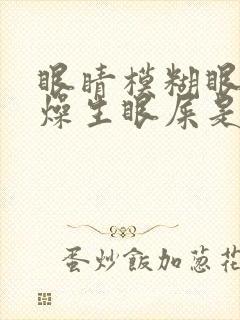 眼睛模糊眼
燥生眼屎是
蛋炒飯加葱花